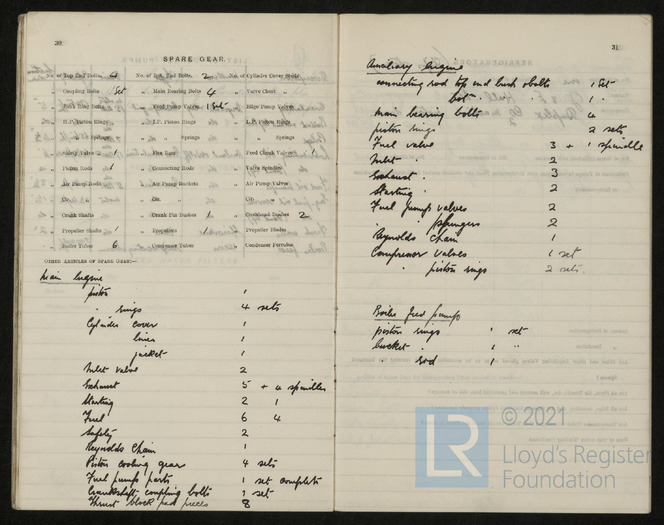 30
SPARE GEAR.
No. of Top End Bolts, 4 No. of Bot. End Bolts, 2 No. of Cylinder Cover Studs
„ Coupling Bolts Set „ Main Bearing Bolts 4 „ Valve Chest „
„ Feed Pump Valves 1 Set „ Bilge Pump Valves
„ H.P. Piston Rings „ I.P. Piston Rings „ L.P. Piston Rings
„ „ Springs „ „ Springs „ „ Springs
„ Safety Valve „ 1 „ Fire Bars „ Feed Check Valves 1
„ Piston Rods 1 „ Connecting Rods „ Valve Spindles
„ Air Pump Rods „ Air Pump Buckets „ Air Pump Valves
„ Cir. „ „ Cir. „ „ Cir. „
„ Crank Shafts „ Crank Pin Bushes 1 „ Crosshead Bushes 2
„ Propeller Shafts 1 „ Propellers 1 „ Propeller Blades
„ Boiler Tubes 6 „ Condenser Tubes „ Condenser Ferrules
OTHER ARTICLES OF SPARE GEAR:—
Main Engine
piston 1
" rings 4 sets
Cylinder cover 1
" liner 1
" jacket 1
Inlet valve 2
Exhaust " 5 + 4 spindles
Starting " 2 1
Fuel " 6 4
Safety " 2
Reynolds Chain 1
Piston cooling gear 4 sets
Fuel pump parts 1 set complete
Crankshaft coupling bolts 1 set
Thrust block pad pieces 8
31
Auxiliary Engine
connecting rod top end bush & bolts 1 Set
" bot. " " 1 "
Main bearing bolts 4
piston rings 2 sets
Fuel valve 3 + 1 spindle
Inlet " 2
Exhaust " 3
Starting " 2
Fuel pump valves 2
" " plungers 2
Reynolds Chain 1
Compressor valves 1 set
" piston rings 2 sets.
Boiler feed pump
piston rings 1 set
bucket " 1 "
" rod 1
LR © 2021
Lloyd's Register
Foundation